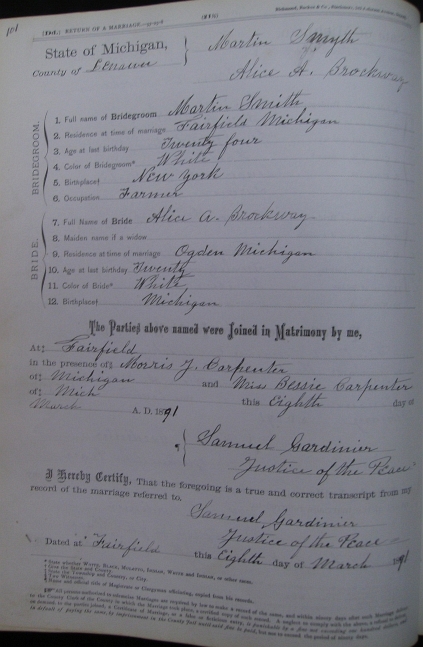 RETURN OF A MARRIAGE
State of Michigan,
County of Lenawee
Martin Smyth
Alice A. Brockway
BRIDEGROOM.
1. Full name of Bridegroom Martin Smith
2. Residence at time of marriage Fairfield Michigan
3. Age at last birthday Twenty four
4. Color of Bridegroom* White
5. Birthplace† New York
6. Occupation Farmer
BRIDE.
7. Full Name of Bride Alice A. Brockway
8. Maiden name if a widow
9. Residence at time of marriage Ogden Michigan
10. Age at last birthday Twenty
11. Color of Bride* White
12. Birthplace† Michigan
The Parties above named were Joined in Matrimony by me,
At‡ Fairfield
in the presence of§ Morris J. Carpenter
of‡ Michigan and Miss Bessie Carpenter
of‡ Mich this Eighth day of
March A. D. 1891
Samuel Gardinier
Justice of the Peace
I Hereby Certify, That the foregoing is a true and correct transcript from my
record of the marriage referred to.
Samuel Gardinier
Justice of the Peace
Dated at Fairfield this Eighth day of March 1891